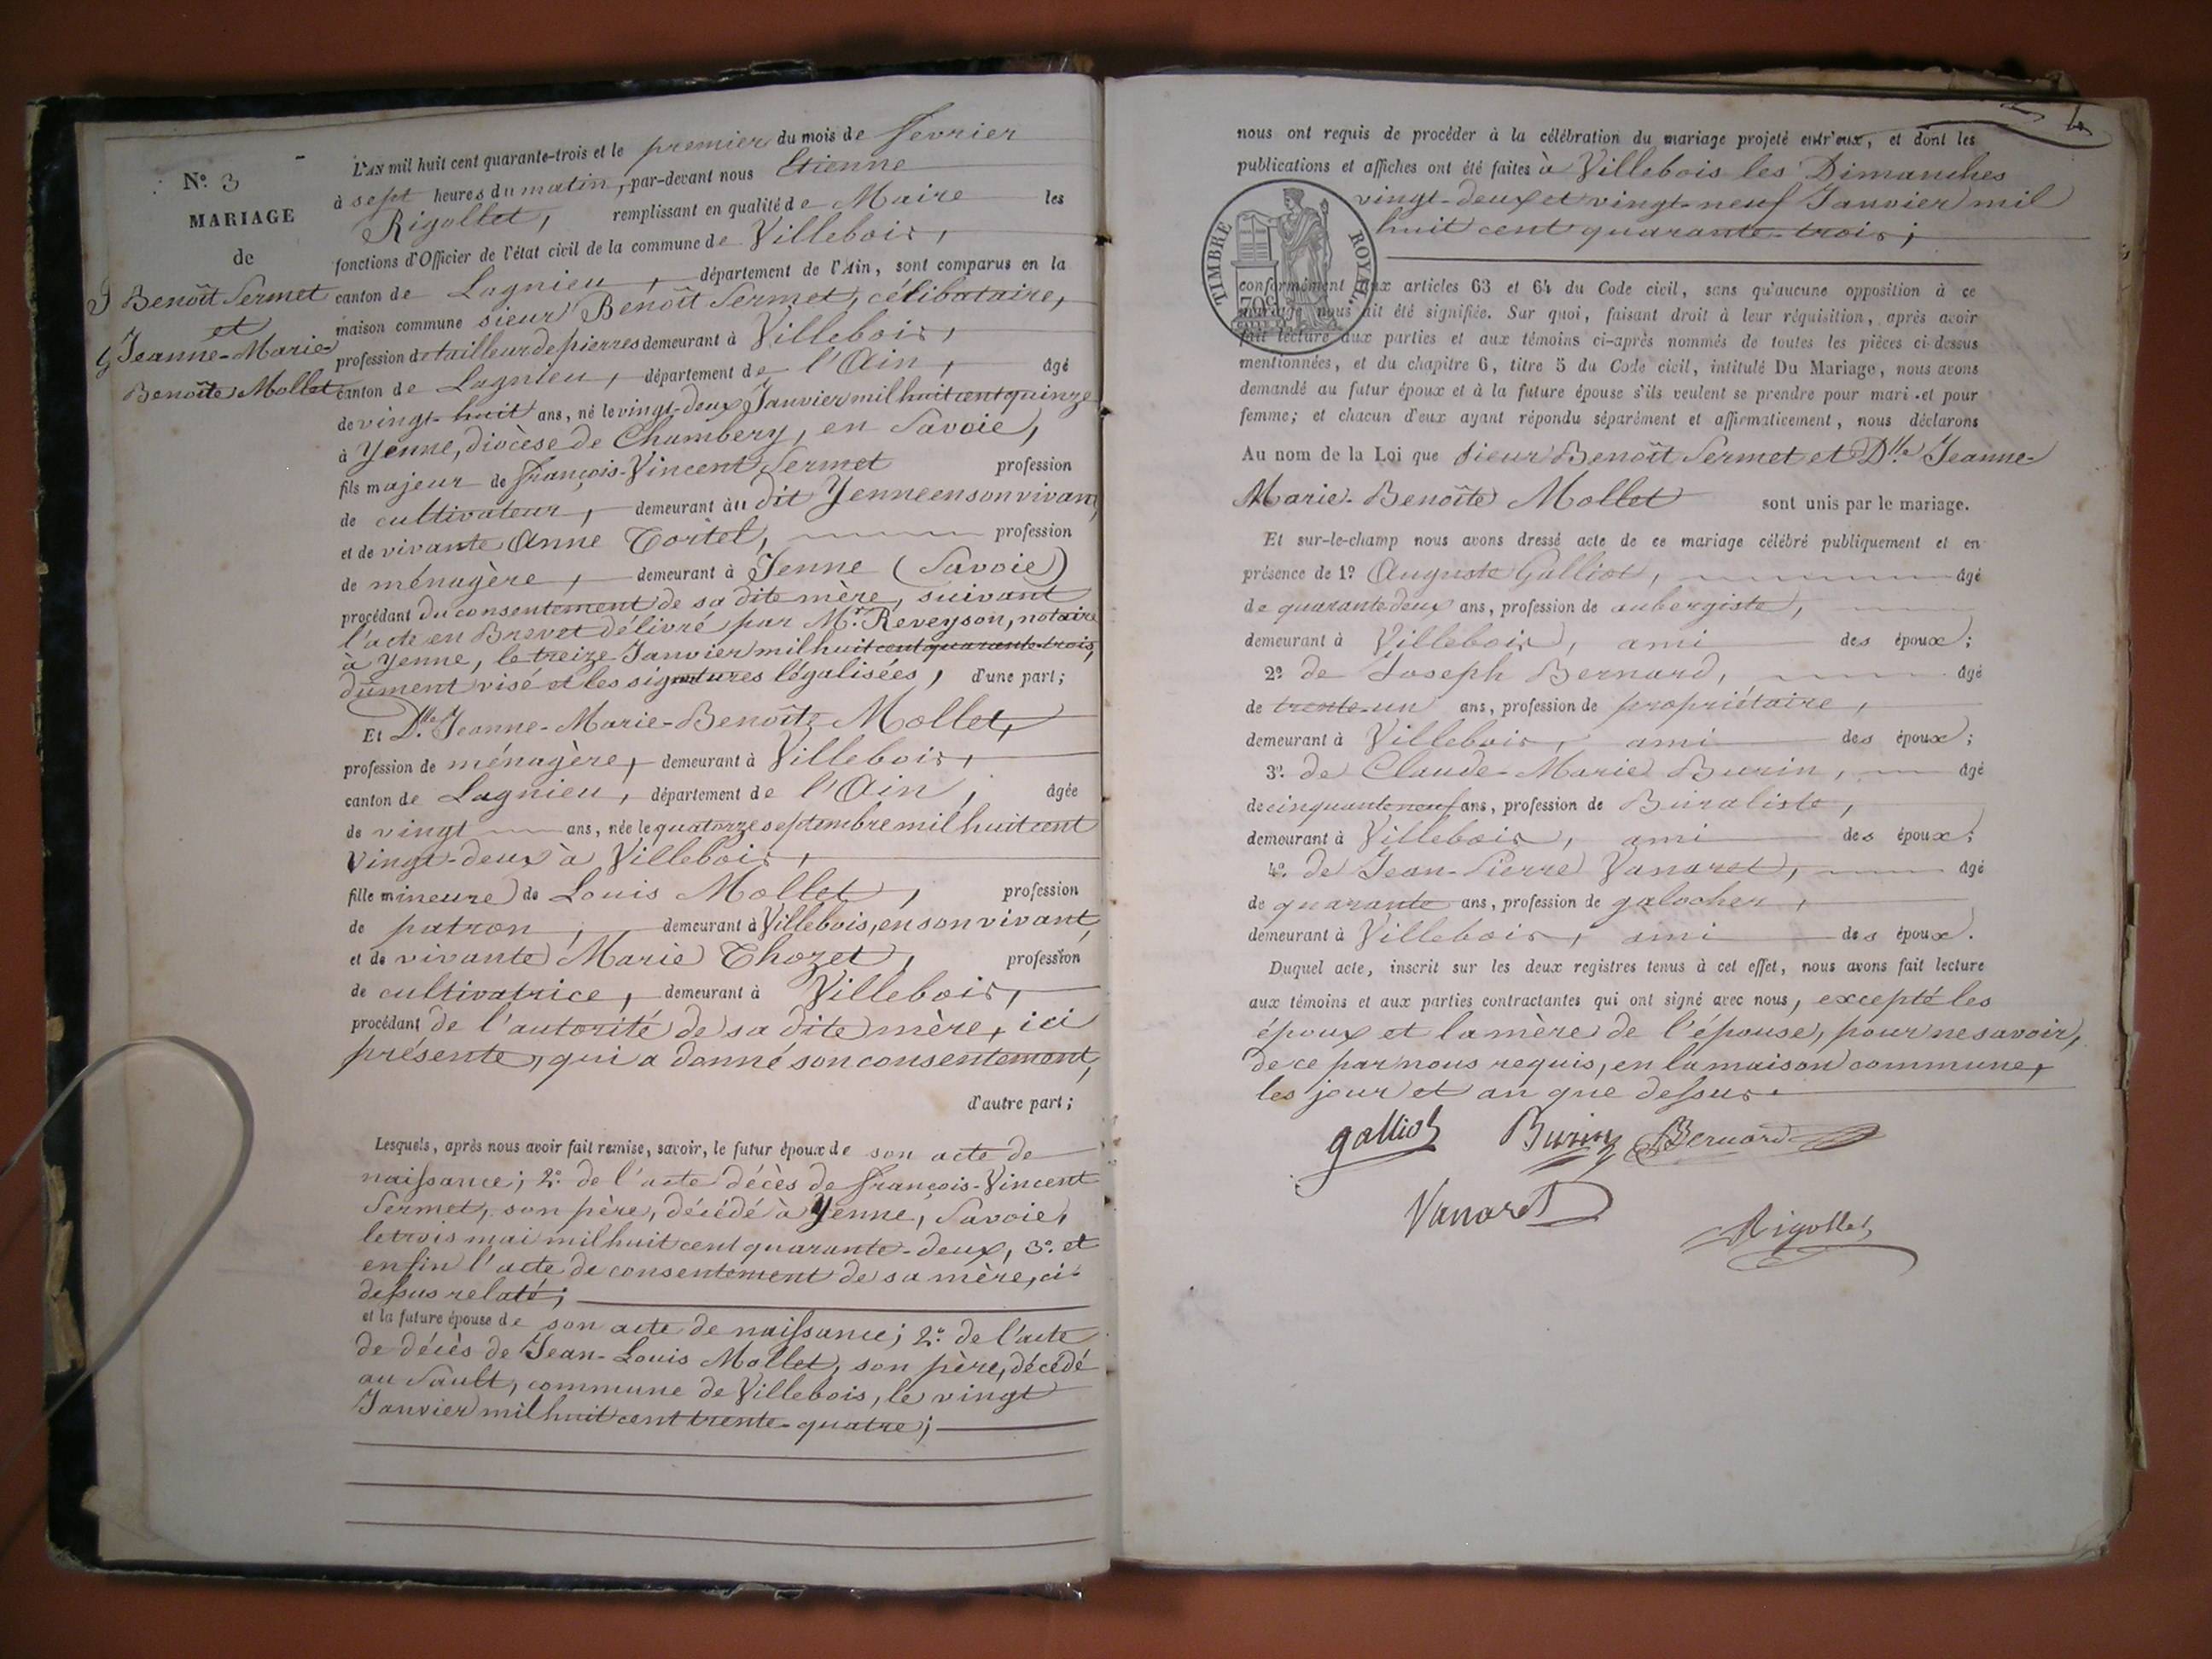 N.o 3
MARIAGE
de
Benoît Sermet
et
Jeanne-Marie-
Benoîte Mollet
L'AN mil huit cent quarante-trois et le premier du mois de fevrier
à sept heures du matin, par-devant nous Etienne
Rigollet, remplissant en qualité de Maire les
fonctions d'Officier de l'état civil de la commune de Villebois,
canton de Lagnieu, département de l'Ain, sont comparus en la
maison commune sieur Benoît Sermet, célibataire,
profession de tailleur de pierres demeurant à Villebois,
canton de Lagnieu, département de l'Ain, âgé
de vingt-huit ans, né le vingt-deux Janvier mil huit cent quinze
à Yenne, diocèse de Chambery, en Savoie,
fils majeur de françois-Vincent Sermet profession
de cultivateur, demeurant au dit Yenne en son vivant
et de vivante Anne Tortel, profession
de ménagère, demeurant à Yenne (Savoie)
procédant du consentement de sa dite mère, suivant
l'acte en Brevet délivré par M.r Reveyson, notaire
à Yenne, le treize Janvier mil huit cent quarante-trois,
dûment visé et les signatures légalisées, d'une part;
Et D.lle Jeanne-Marie-Benoîte Mollet,
profession de ménagère, demeurant à Villebois,
canton de Lagnieu, département de l'Ain, âgée
de vingt ans, née le quatorze septembre mil huit cent
vingt-deux à Villebois,
fille mineure de Louis Mollet, profession
de patron, demeurant à Villebois, en son vivant,
et de vivante Marie Thozet, profession
de cultivatrice, demeurant à Villebois,
procédant de l'autorité de sa dite mère, ici
présente, qui a donné son consentement,
d'autre part;
Lesquels, après nous avoir fait remise, savoir, le futur époux de son acte de
naissance; 2.o de l'acte décès de françois-Vincent
Sermet, son père, décédé à Yenne, Savoie,
le trois mai mil huit cent quarante-deux, 3.o et
enfin l'acte de consentement de sa mère, ci-
dessus relaté;
et la future épouse de son acte de naissance; 2.o de l'acte
de décès de Jean-Louis Mollet, son père, décédé
au Sault, commune de Villebois, le vingt
Janvier mil huit cent trente-quatre;
nous ont requis de procéder à la célébration du mariage projeté entr'eux, et dont les
publications et affiches ont été faites à Villebois les Dimanches
vingt-deux et vingt-neuf Janvier mil
huit cent quarante-trois;
TIMBRE ROYAL
70c
conformément aux articles 63 et 64 du Code civil, sans qu'aucune opposition à ce
mariage nous ait été signifiée. Sur quoi, faisant droit à leur réquisition, après avoir
fait lecture aux parties et aux témoins ci-après nommés de toutes les pièces ci-dessus
mentionnées, et du chapitre 6, titre 5 du Code civil, intitulé Du Mariage, nous avons
demandé au futur époux et à la future épouse s'ils veulent se prendre pour mari et pour
femme; et chacun d'eux ayant répondu séparément et affirmativement, nous déclarons
Au nom de la Loi que sieur Benoît Sermet et D.lle Jeanne-
Marie-Benoîte Mollet sont unis par le mariage.
Et sur-le-champ nous avons dressé acte de ce mariage célébré publiquement et en
présence de 1o Auguste Galliot, âgé
de quarante deux ans, profession de aubergiste,
demeurant à Villebois, ami des époux;
2o de Joseph Bernard, âgé
de trente-un ans, profession de propriétaire,
demeurant à Villebois, ami des époux;
3o de Claude-Marie Burin, âgé
de cinquante neuf ans, profession de Buraliste,
demeurant à Villebois, ami des époux;
4o de Jean-Pierre Vanaret, âgé
de quarante ans, profession de galocher,
demeurant à Villebois, ami des époux.
Duquel acte, inscrit sur les deux registres tenus à cet effet, nous avons fait lecture
aux témoins et aux parties contractantes qui ont signé avec nous, excepté les
époux et la mère de l'épouse, pour ne savoir,
de ce par nous requis, en la maison commune,
les jour et an que dessus.
galliot Burin Bernard
Vanaret
Rigollet